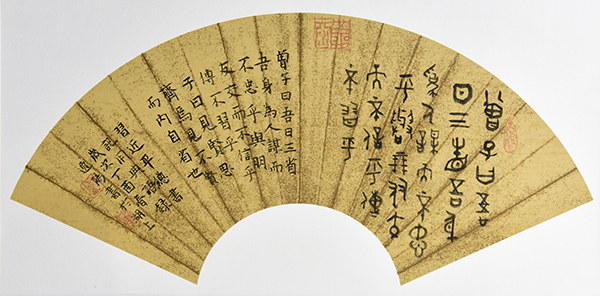 曾子曰吾
日三省吾身
為人謀而不忠
乎與朋友交
而不信乎傳
不習乎
曾子曰吾日三省
吾身為人謀而
不忠乎與朋
友交而不信乎
傳不習乎
子曰見賢思
齊焉見不賢
而內自省也
習近平總書
記用典
歲次丁酉